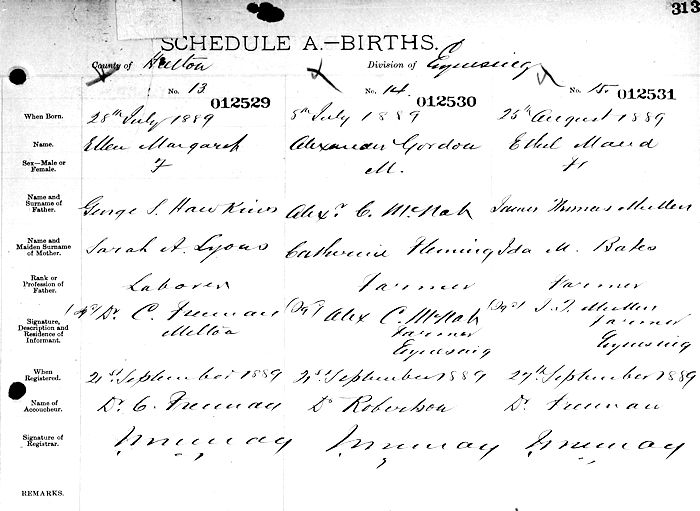 313
SCHEDULE A.—BIRTHS.
County of Halton Division of Esquesing
No. 13 012529 No. 14. 012530 No. 15. 012531
When Born. 28th July 1889 8th July 1889 25th August 1889
Name. Ellen Margaret Alexander Gordon Ethel Maud
Sex—Male or Female. F M. F
Name and Surname of Father. George S. Hawkins Alexr C. McNab James Thomas Mullen
Name and Maiden Surname of Mother. Sarah A. Lyons Catherine Fleming Ida M. Bates
Rank or Profession of Father. Laborer Farmer Farmer
Signature, Description and Residence of Informant. Dr C. Freeman Alex C. McNab J. T. Mullen
Milton Farmer Farmer
Esquesing Esquesing
When Registered. 21st September 1889 21st September 1889 27th September 1889
Name of Accoucheur. Dr C. Freeman Dr Robertson Dr. Freeman
Signature of Registrar.
REMARKS.